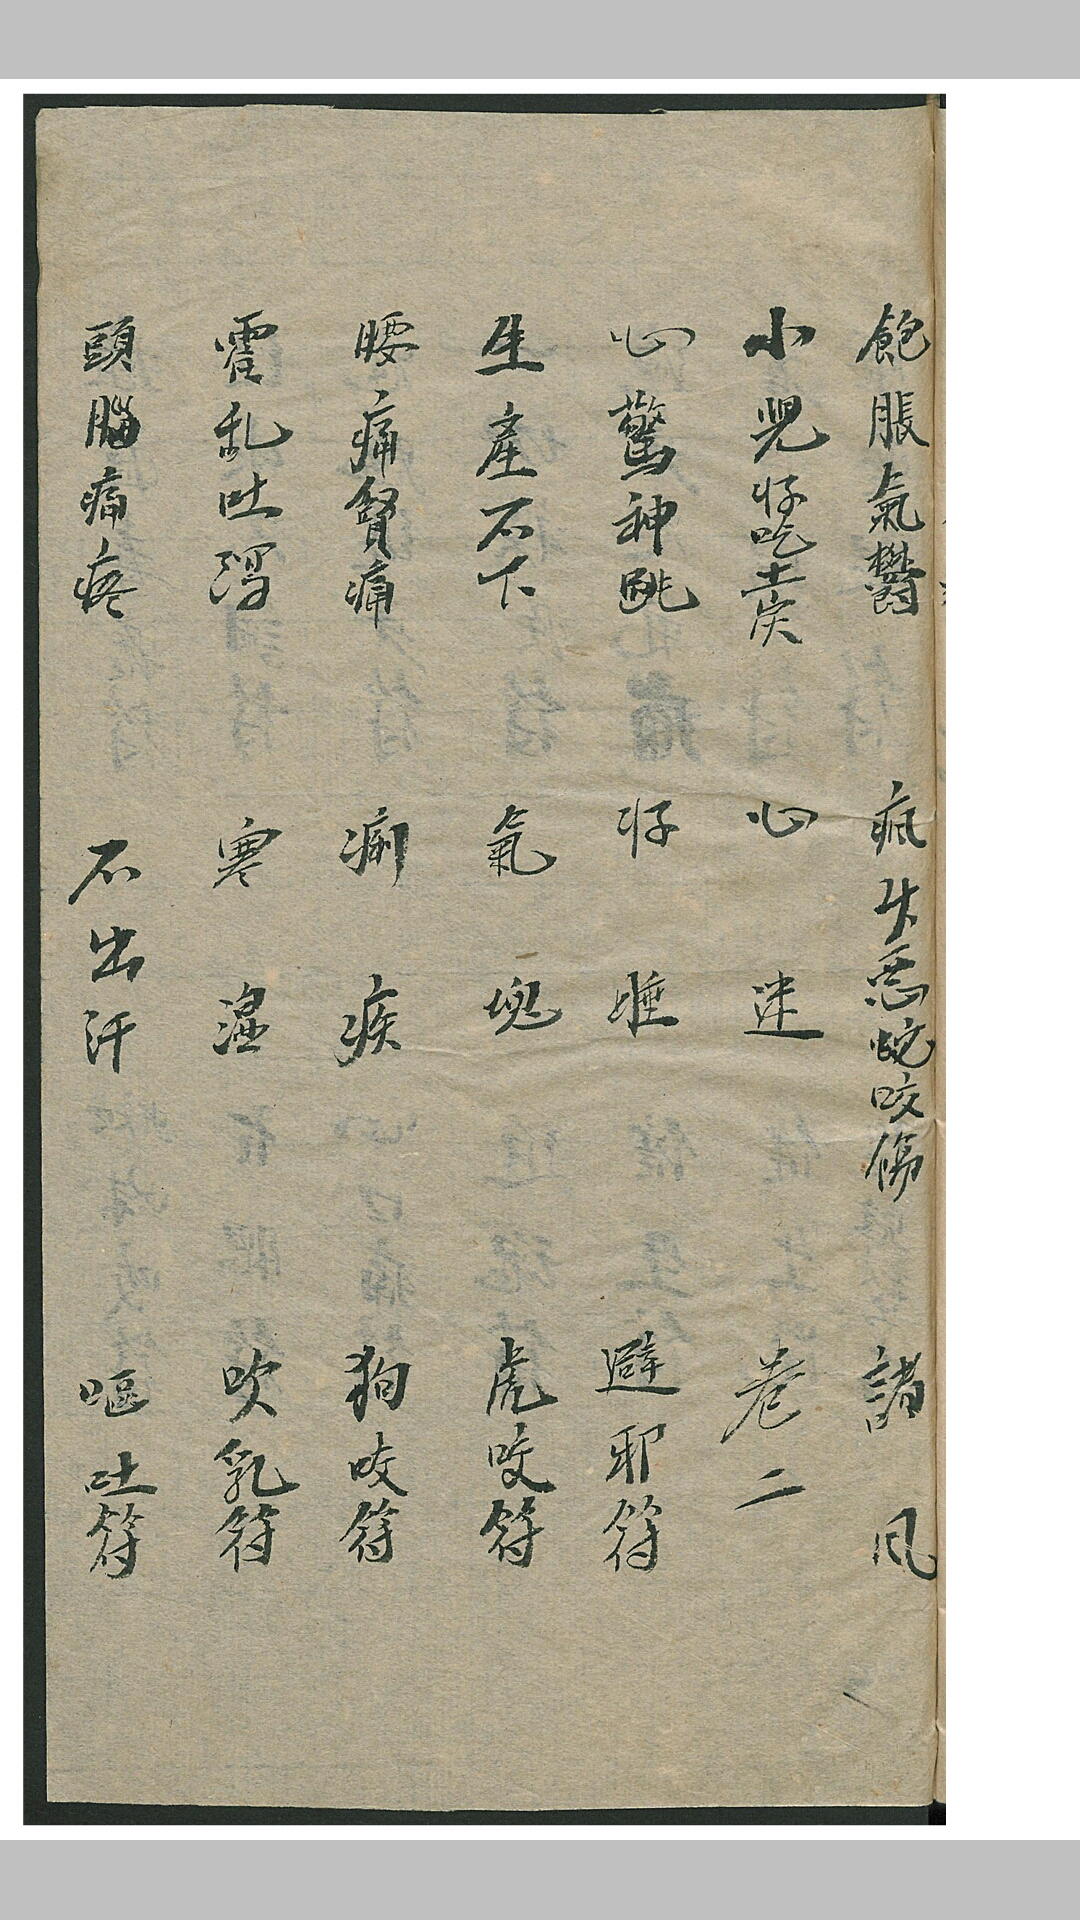 飽脹氣欝 疯犬惡蛇咬傷 諸風
小児好吃土炭 心迷 卷二
心驚神跳 好睡 避邪符
生產不下 氣塊 虎咬符
腰痛腎痛 痢疾 狗咬符
霍乱吐瀉 寒濕 吹乳符
頭腦痛疼 不出汗 嘔吐符